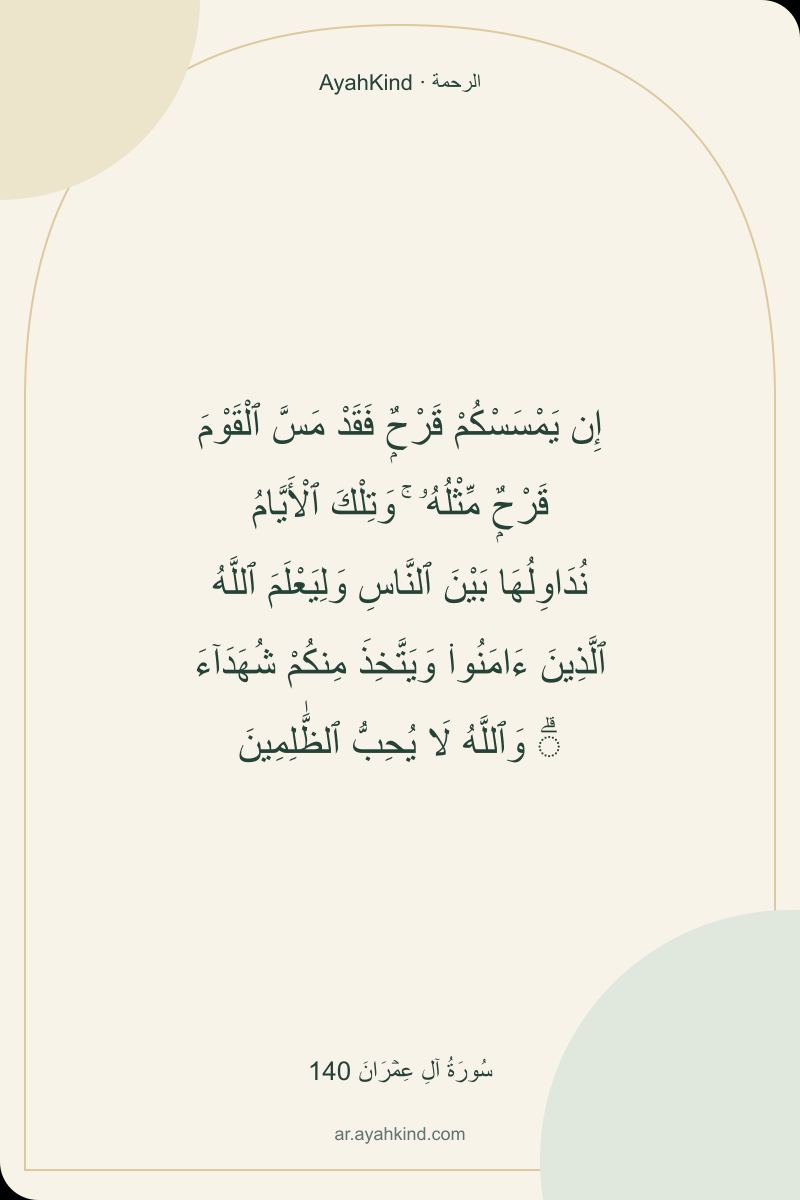 AyahKind · الرحمة
إِن يَمْسَسْكُمْ قَرْحٌۭ فَقَدْ مَسَّ ٱلْقَوْمَ
قَرْحٌۭ مِّثْلُهُۥ ۚ وَتِلْكَ ٱلْأَيَّامُ
نُدَاوِلُهَا بَيْنَ ٱلنَّاسِ وَلِيَعْلَمَ ٱللَّهُ
ٱلَّذِينَ ءَامَنُوا۟ وَيَتَّخِذَ مِنكُمْ شُهَدَآءَ
ۗ وَٱللَّهُ لَا يُحِبُّ ٱلظَّٰلِمِينَ
سُورَةُ آلِ عِمْرَانَ 140
ar.ayahkind.com